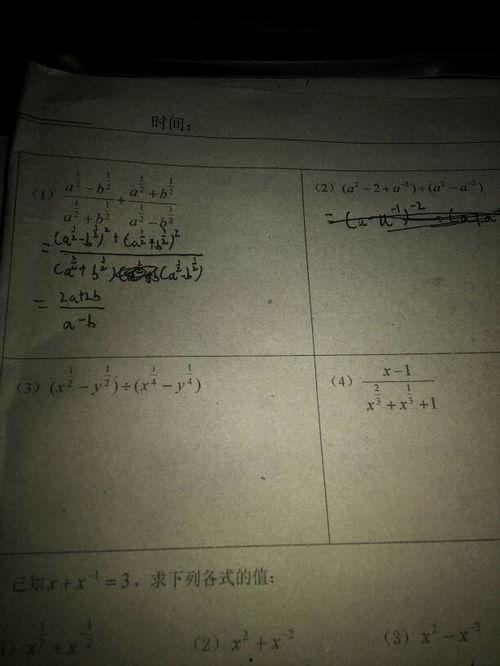 时间:
(1) \frac{a^{\frac{1}{2}}-b^{\frac{1}{2}}}{a^{\frac{1}{2}}+b^{\frac{1}{2}}}+\frac{a^{\frac{1}{2}}+b^{\frac{1}{2}}}{a^{\frac{1}{2}}-b^{\frac{1}{2}}}
= \frac{(a^{\frac{1}{2}}-b^{\frac{1}{2}})^2+(a^{\frac{1}{2}}+b^{\frac{1}{2}})^2}{(a^{\frac{1}{2}}+b^{\frac{1}{2}})(a^{\frac{1}{2}}-b^{\frac{1}{2}})}
= \frac{2a+2b}{a-b}
(2) (a^2-2+a^{-2})÷(a^2-a^{-2})
(3) (x^{\frac{1}{2}}-y^{\frac{1}{2}})÷(x^{\frac{1}{4}}-y^{\frac{1}{4}})
(4) \frac{x-1}{x^{\frac{2}{3}}+x^{\frac{1}{3}}+1}
已知x+x^{-1}=3，求下列各式的值:
1) x^{\frac{1}{2}}+x^{-\frac{1}{2}} (2) x^2+x^{-2} (3) x^2-x^{-2}